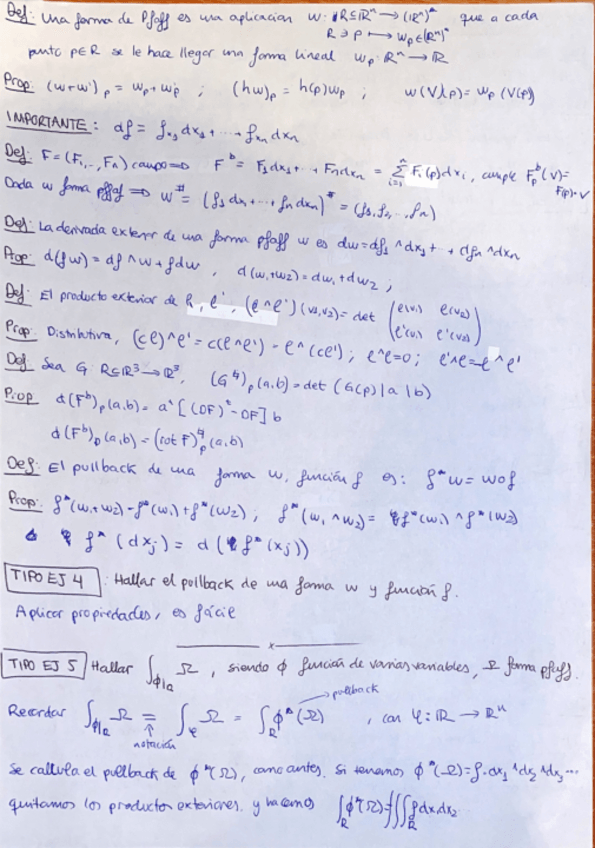 Def: Una forma de Pfaff es una aplicacion w: R⊆ℝⁿ → (ℝⁿ)* que a cada
R ∋ p ↦ w_p ∈ (ℝⁿ)*
punto p∈R se le hace llegar una forma lineal w_p: ℝⁿ → ℝ
Prop: (w+w')_p = w_p + w'_p ; (hw)_p = h(p)w_p ; w(V)(p) = w_p(V(p))
IMPORTANTE: df = f_{x1} dx₁ + ... + f_{xn} dxn
Def: F=(F₁,..,Fn) campo ⇒ F^b = F₁dx₁+...+Fndxn = Σ_{i=1}^n Fi(p)dxi, cumple F_p^b(v)=
F(p)·v
Dada w forma pfaff ⇒ w^# = (f₁dx₁+...+fndxn)^# = (f₁,f₂,...,fn)
Def: La derivada exterior de una forma pfaff w es dw = df₁∧dx₁+...+dfn∧dxn
Prop: d(fw) = df∧w + fdw , d(w₁+w₂) = dw₁+dw₂ ;
Def: El producto exterior de l, l', (l∧l')(v₁,v₂) = det (l(v₁) l(v₂)
l'(v₁) l'(v₂))
Prop: Distributiva, (cl)∧l' = c(l∧l') = l∧(cl') ; l∧l=0 ; l'∧l=-l∧l'
Def: Sea G: R⊆ℝ³→ℝ³, (G^4)_p(a,b) = det (G(p)|a|b)
Prop d(F^b)_p(a,b) = a^t[(DF)^t - DF]b
d(F^b)_p(a,b) = (rot F)^4_p(a,b)
Def: El pullback de una forma w, función f es: f*w = w∘f
Prop: f*(w₁+w₂) = f*(w₁)+f*(w₂) ; f*(w₁∧w₂) = f*(w₁)∧f*(w₂)
f*(dxj) = d(f*(xj))
TIPO EJ 4: Hallar el pullback de una forma w y función f.
Aplicar propiedades, es fácil
x
TIPO EJ 5 Hallar ∫_{ϕ|R} Ω , siendo ϕ función de varias variables, Ω forma pfaff.
pullback
Recordar ∫_{ϕ|R} Ω = ∫_φ Ω = ∫_R ϕ*(Ω) , con φ: ℝ → ℝⁿ
notación
Se callula el pullback de ϕ*(Ω), como antes. Si tenemos ϕ*(Ω)=f·dx₁∧dx₂∧dx₃...
quitamos los productos exteriores. y hacemos ∫_R ϕ*(Ω)=∫∫∫_R f dx₁dx₂...